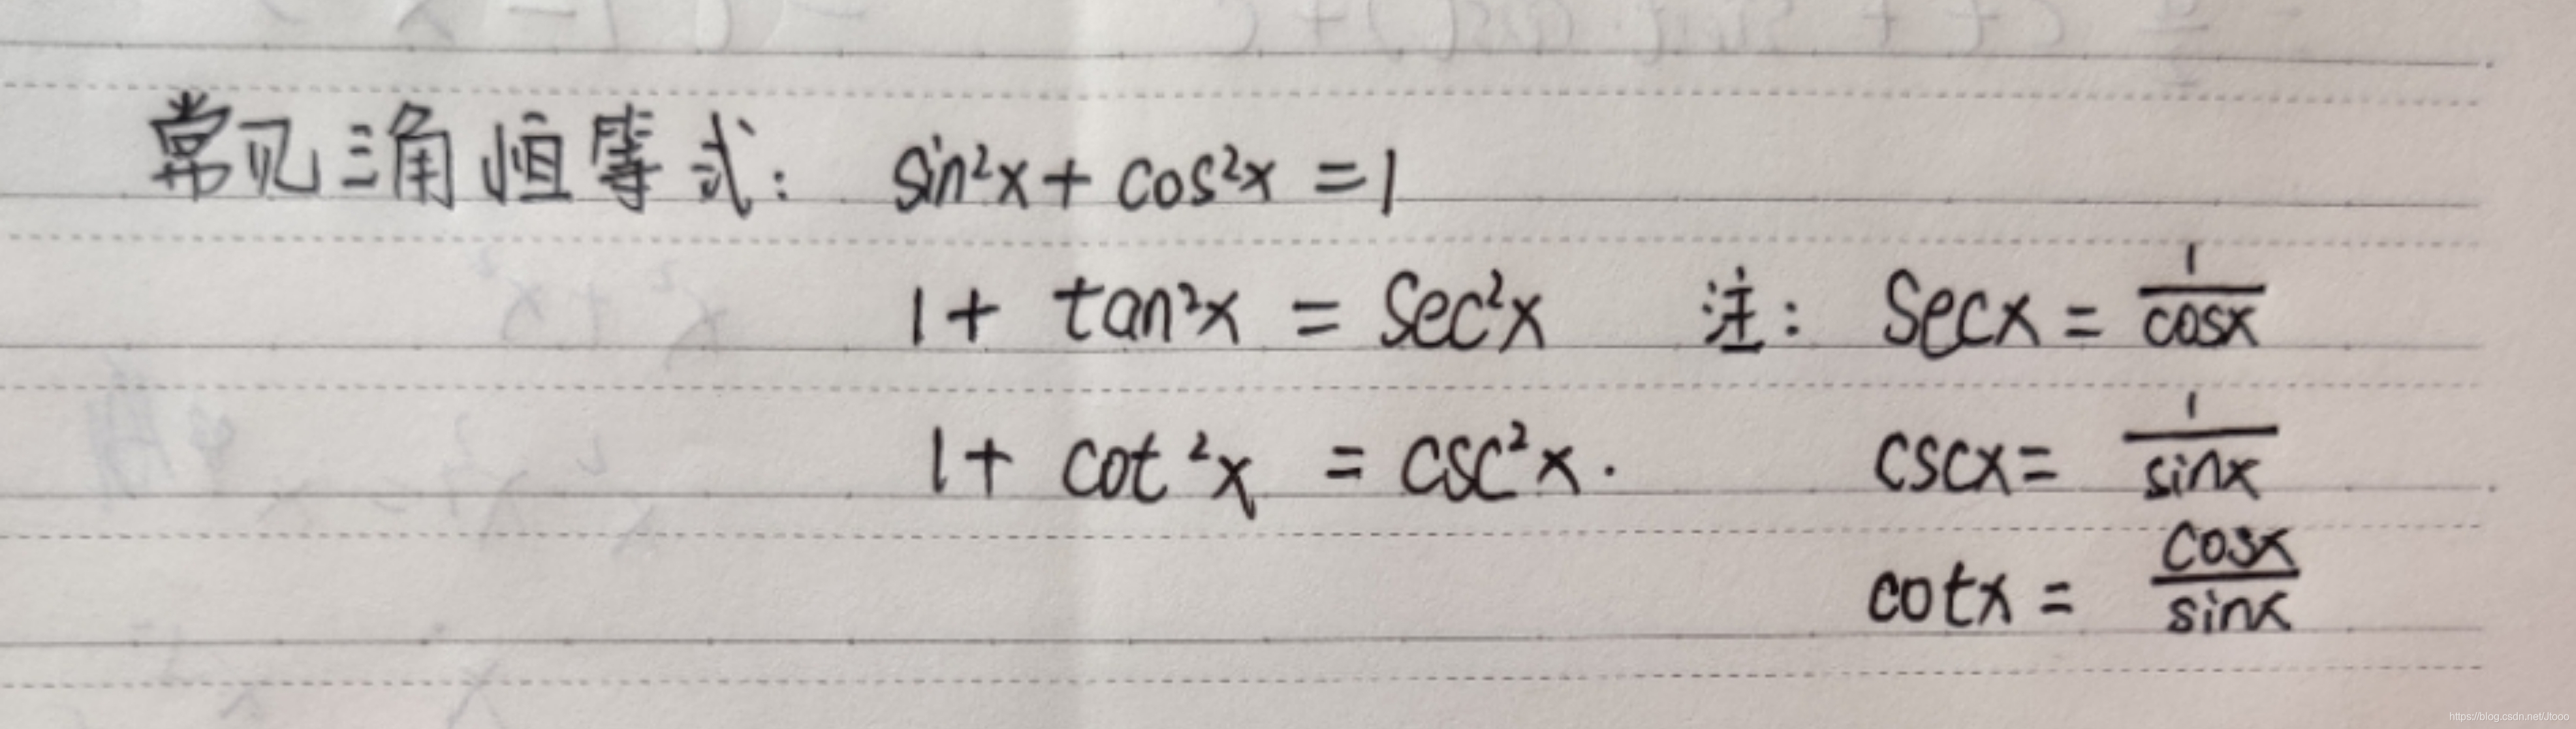 常见三角恒等式: sin²x + cos²x = 1
1 + tan²x = sec²x 注: secx = 1/cosx
1 + cot²x = csc²x. cscx = 1/sinx
cotx = cosx/sinx
https://blog.csdn.net/Jtooo